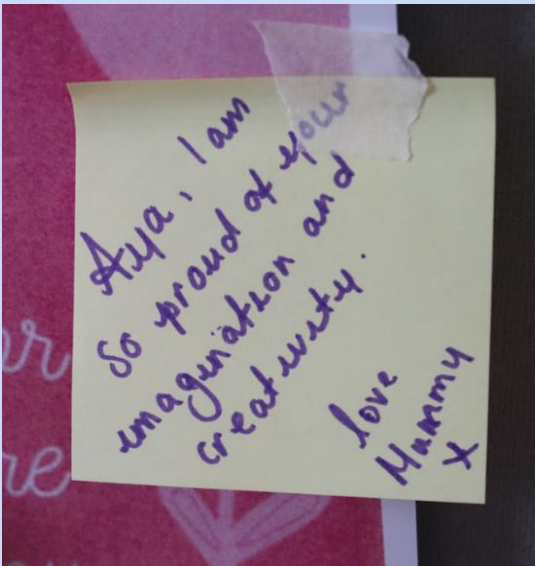 Aya, I am
so proud of your
imagination and
creativity.
love
Mummy
x
or
re